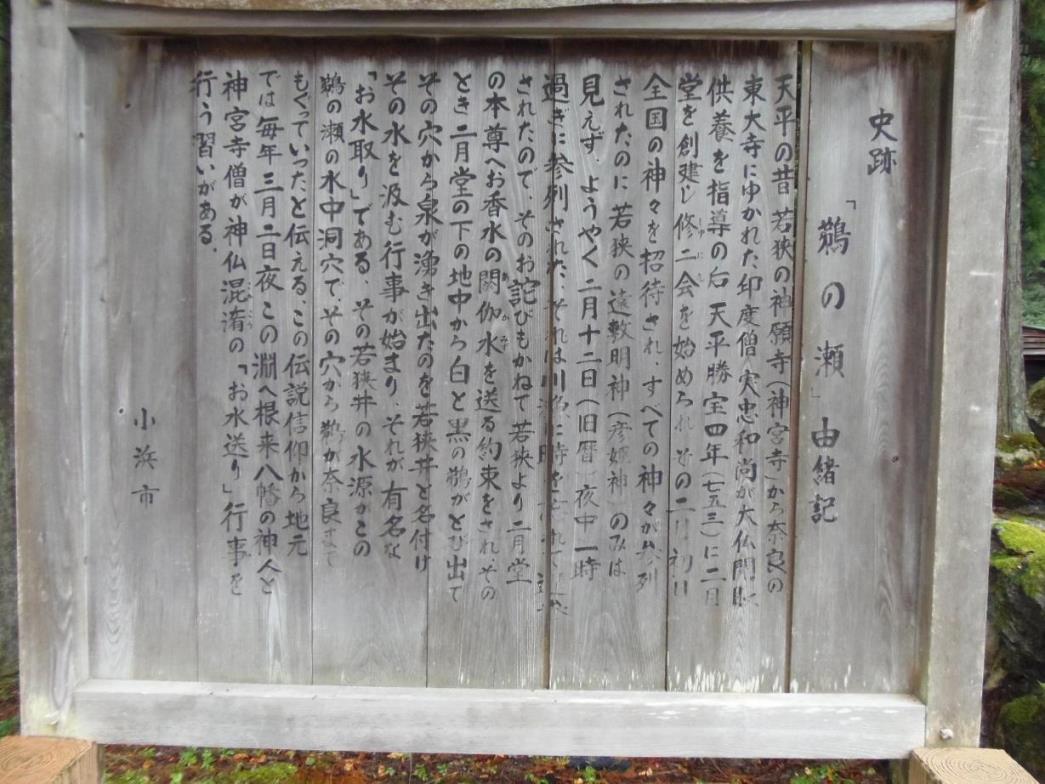 史跡
「鵜の瀬」由緒記
天平の昔 若狭の神願寺（神宮寺）から奈良の
東大寺にゆかれた印度僧 実忠和尚が大仏開眼
供養を指導の后 天平勝宝四年（七五三）に二月
堂を創建し修二会を始められ その二月初日
全国の神々を招待され、すべての神々が参列
されたのに 若狭の遠敷明神（彦姫神）のみは
見えず、ようやく二月十二日（旧暦）夜中一時
過ぎに参列された、それは川漁に時を忘れて
されたので、そのお詫びもかねて 若狭より二月堂
の本尊へお香水の閼伽水を送る約束をされ、その
とき 二月堂の下の地中から白と黒の鵜がとび出て
その穴から泉が湧き出たのを若狭井と名付け
その水を汲む行事が始まり、それが有名な
「お水取り」である、その若狭井の水源がこの
鵜の瀬の水中洞穴で、その穴から鵜が奈良まで
もぐっていったと伝える、この伝説信仰から地元
では毎年三月二日夜 この淵へ根来八幡の神人と
神宮寺僧が神仏混淆の「お水送り」行事を
行う習いがある、
小浜市